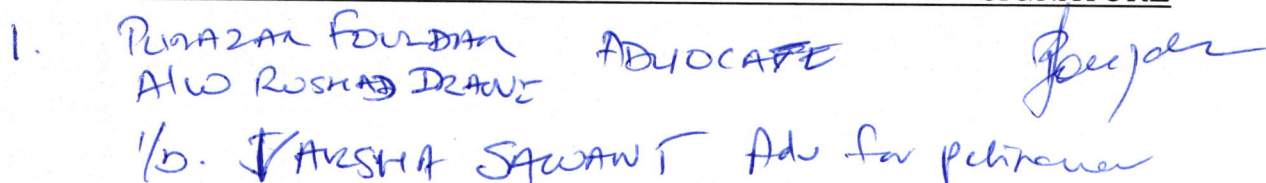 SIGNATURE
1. PURAZAR FOUZDAR ADVOCATE
A/W RUSHAD IRANI
i/b. VARSHA SAWANT Adv for petitioner